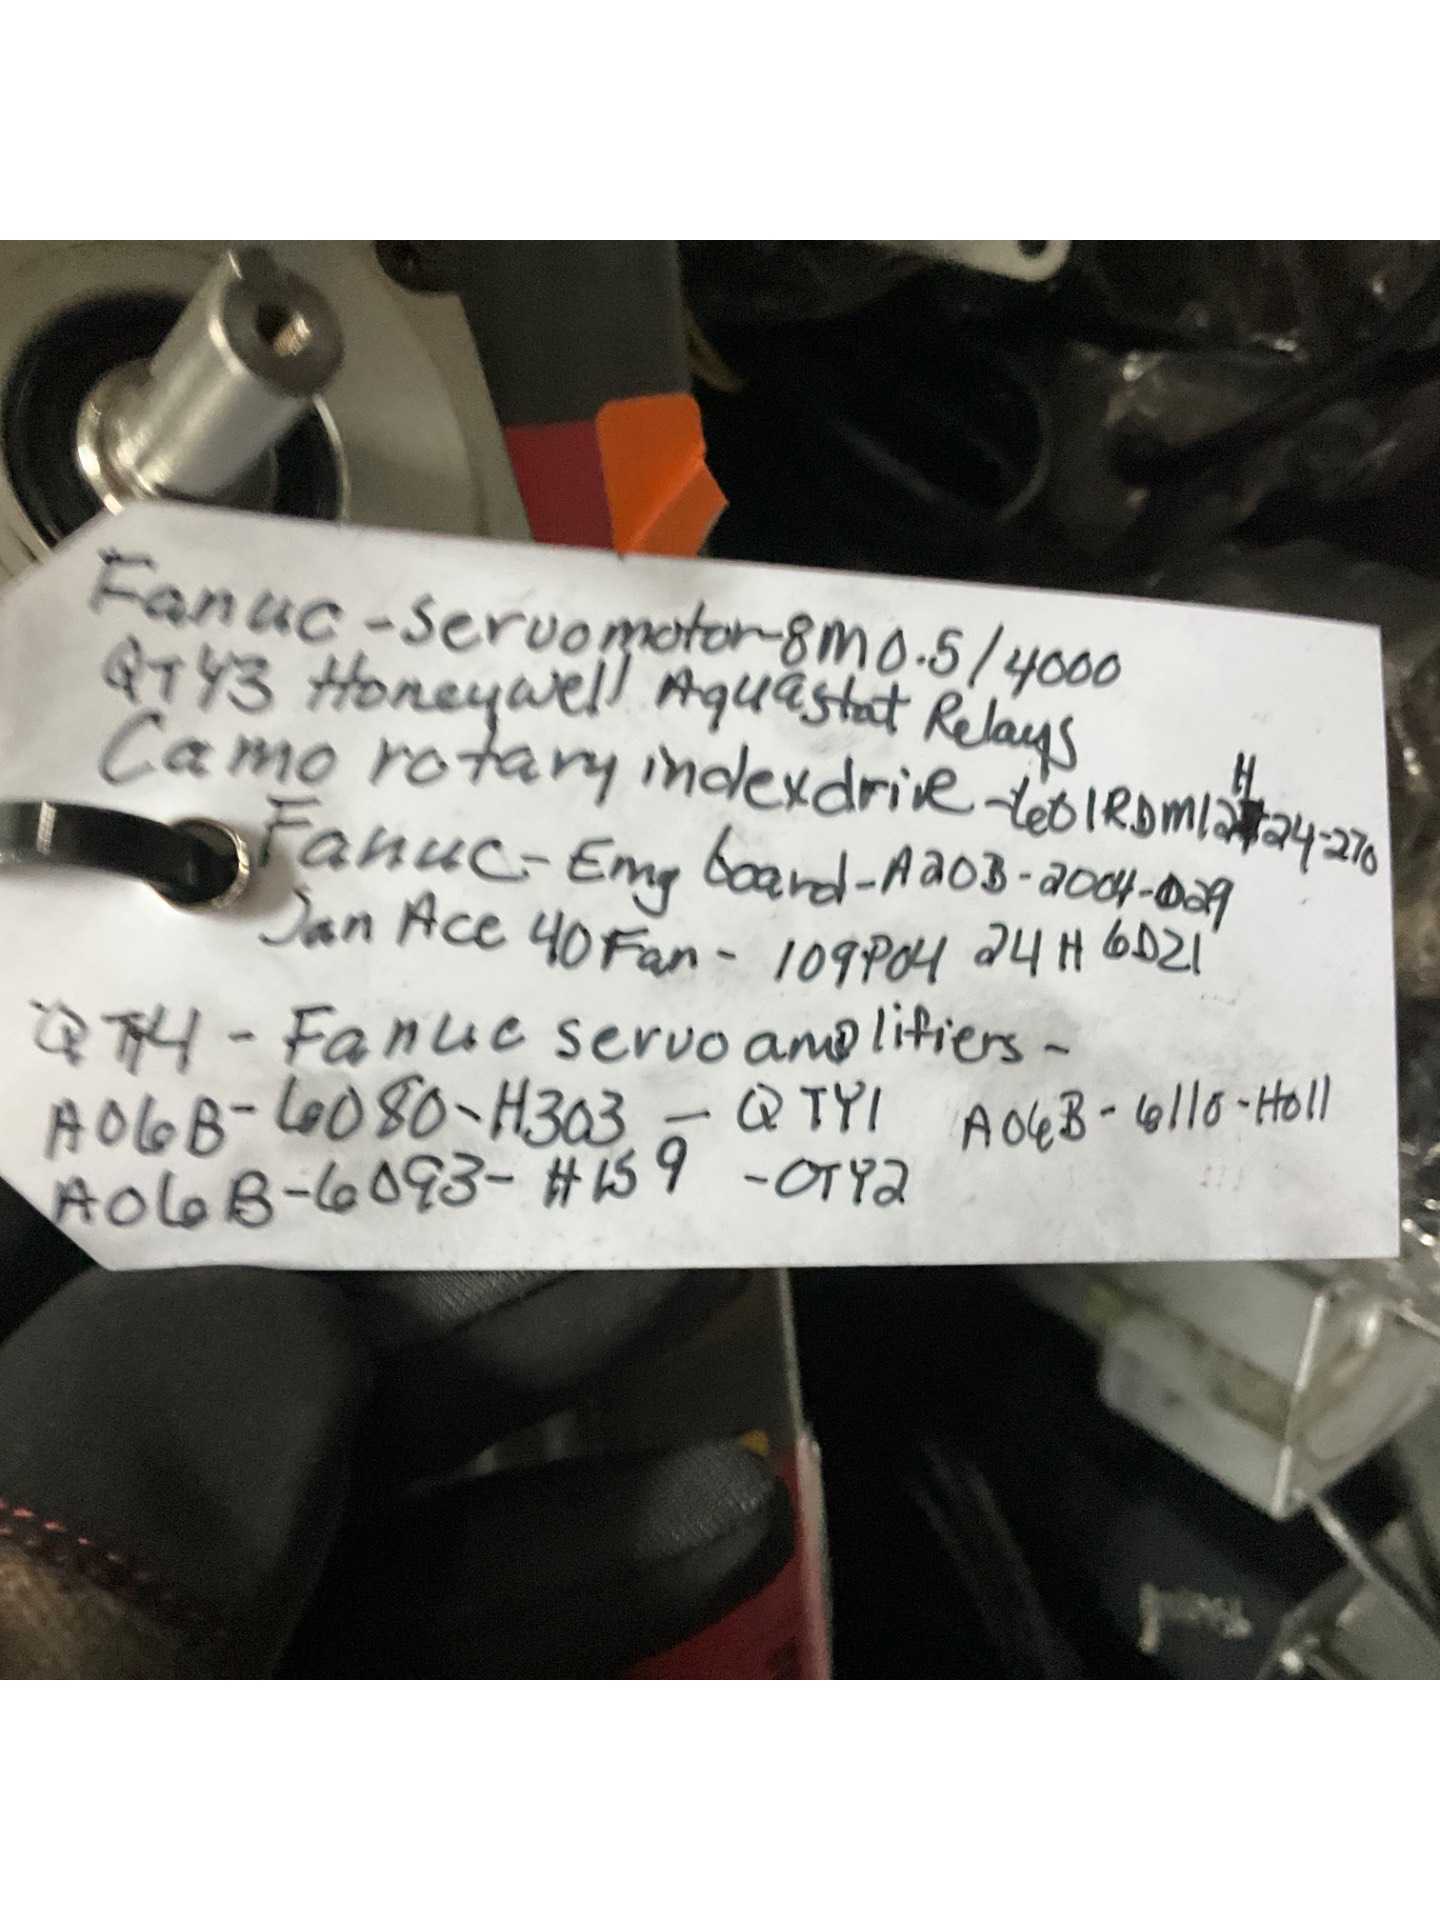 Fanuc-servomotor-8M0.5/4000
QTY3 Honeywell Aquastat Relays
Camo rotary indexdrive-601RDM12H24-270
Fanuc-Emg board-A20B-2004-029
San Ace 40Fan- 109P04 24H 6D21
QTY4 - Fanuc servo amplifiers-
A06B-6080-H303 - QTY1 A06B-6110-H011
A06B-6093-H159 -QTY2